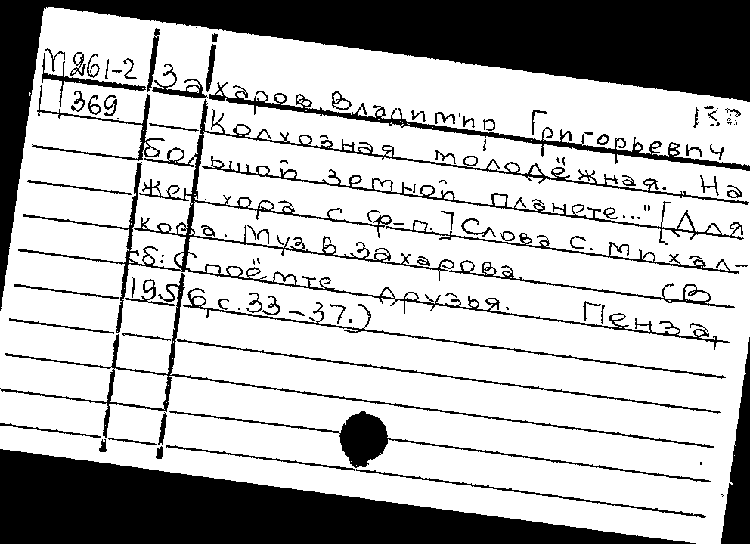 М 261-2
369
138
Захаров, Владимир Григорьевич
Колхозная молодёжная. „На
большой земной планете..." [Для
жен хора с ф-п.] Слова С. Михал-
кова. Муз В. Захарова. (В
сб: Споёмте друзья. Пенза,
1956, с. 33-37.)